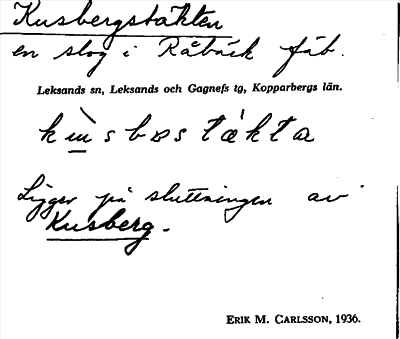 Kusbergstäkten
en slog i Råbäck fäb.
Leksands sn, Leksands och Gagnefs tg, Kopparbergs län.
Ligger på sluttningen av
Kusberg.
ERIK M. CARLSSON, 1936.